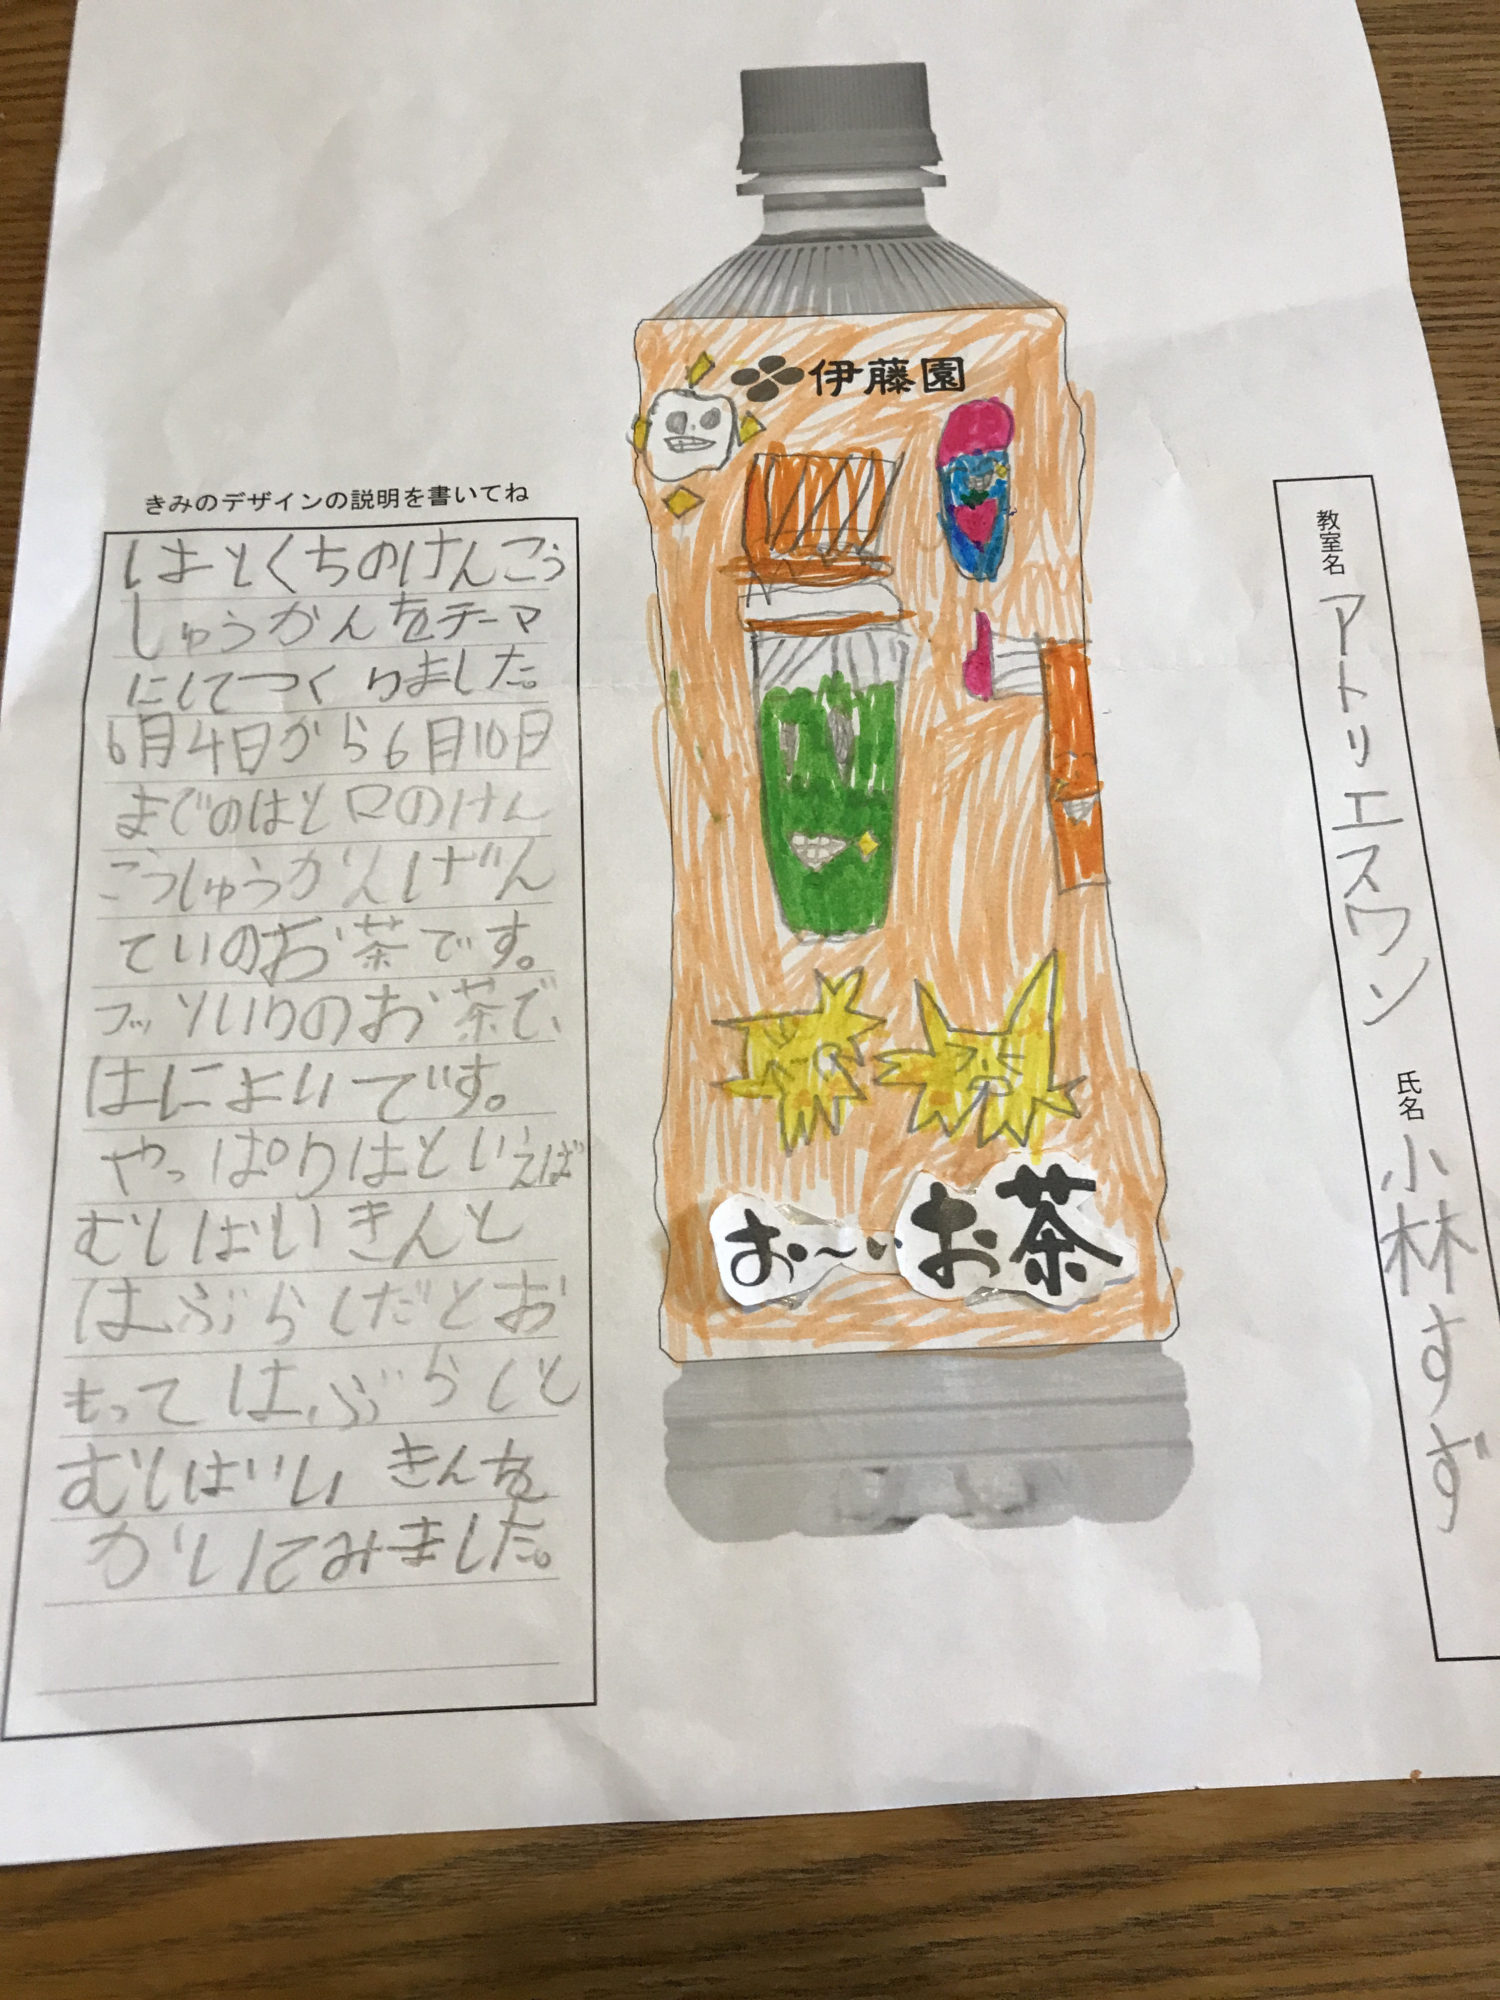 きみのデザインの説明を書いてね
はとくちのけんこう
しゅうかんをテーマ
にしてつくりました。
6月4日から6月10日
までのはと口のけん
こうしゅうかんげん
ていのお茶です。
フッソいりのお茶で、
はによいです。
やっぱりはといえば
むしばいきんと
はぶらしだとお
もってはぶらしと
むしばいしきんを
かいてみました。
伊藤園
お〜いお茶
教室名 アトリエスワン
氏名 小林すず